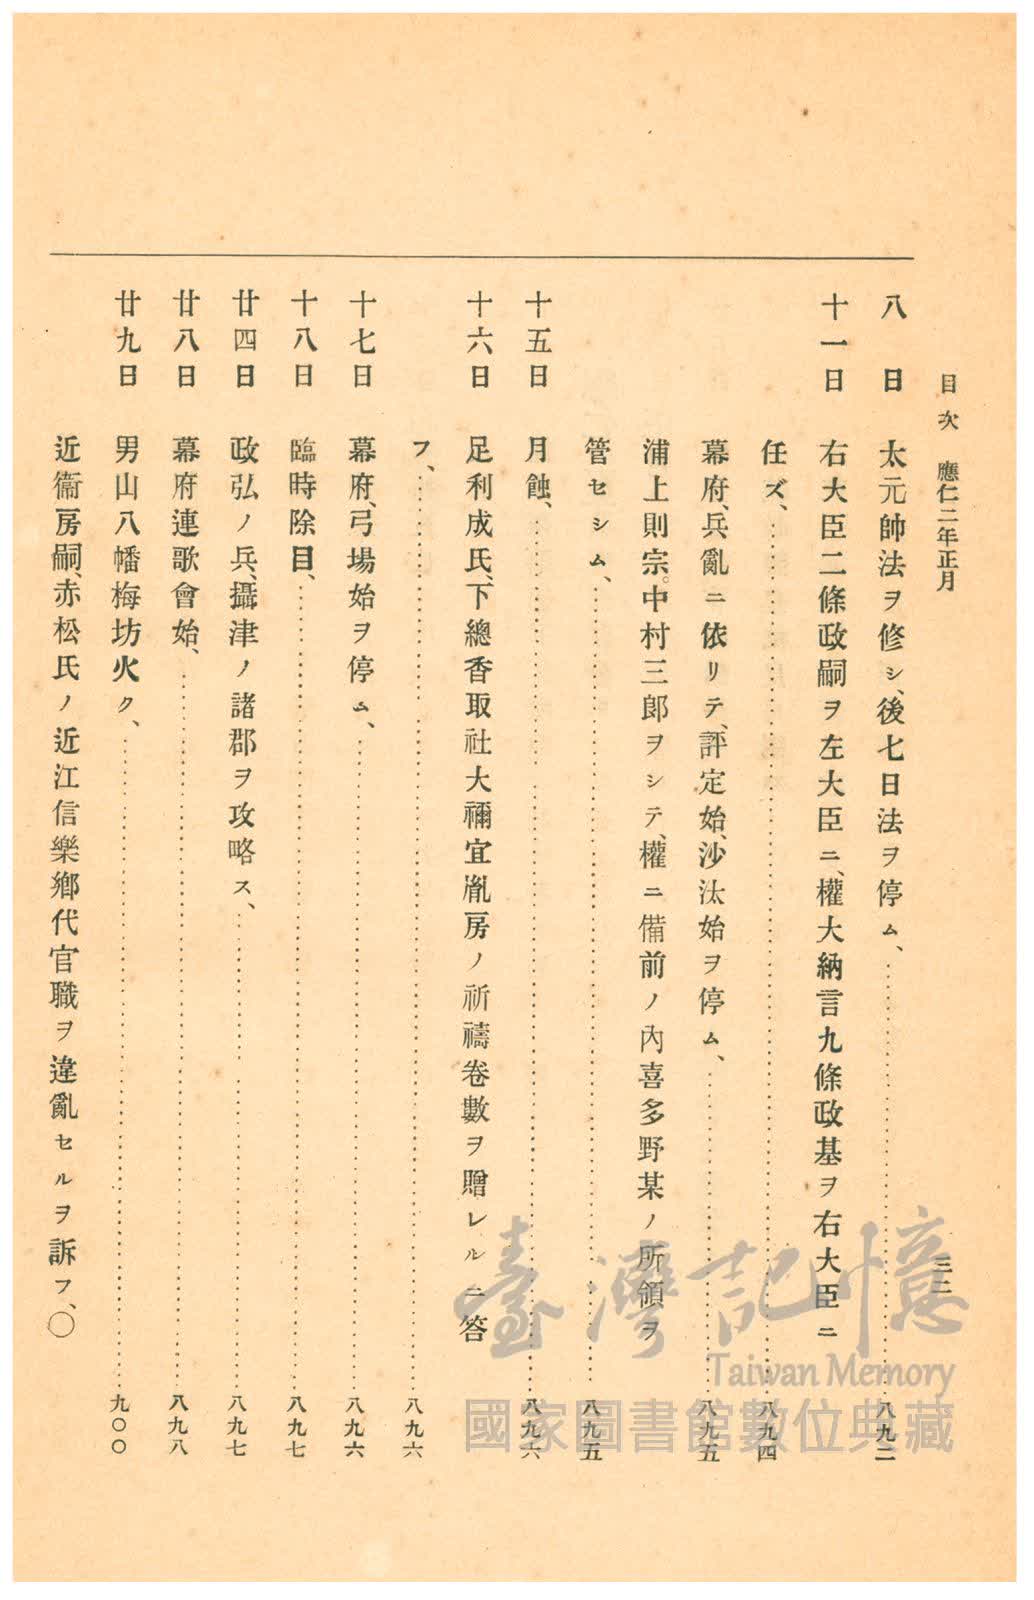 目次 應仁二年正月 三二
八日 太元帥法ヲ修シ、後七日法ヲ停ム、 八九二
十一日 右大臣二條政嗣ヲ左大臣ニ、權大納言九條政基ヲ右大臣ニ
任ズ、 八九四
幕府、兵亂ニ依リテ、評定始、沙汰始ヲ停ム、 八九五
浦上則宗、中村三郎ヲシテ、權ニ備前ノ內喜多野某ノ所領ヲ
管セシム、 八九五
十五日 月蝕、 八九六
十六日 足利成氏、下總香取社大禰宜胤房ノ祈禱卷數ヲ贈レルニ答
フ、 八九六
十七日 幕府、弓場始ヲ停ム、 八九六
十八日 臨時除目、 八九七
廿四日 政弘ノ兵、攝津ノ諸郡ヲ攻略ス、 八九七
廿八日 幕府連歌會始、 八九八
廿九日 男山八幡梅坊火ク、 九〇〇
近衞房嗣、赤松氏ノ近江信樂鄕代官職ヲ違亂セルヲ訴フ、〇
臺灣記憶
Taiwan Memory
國家圖書館數位典藏